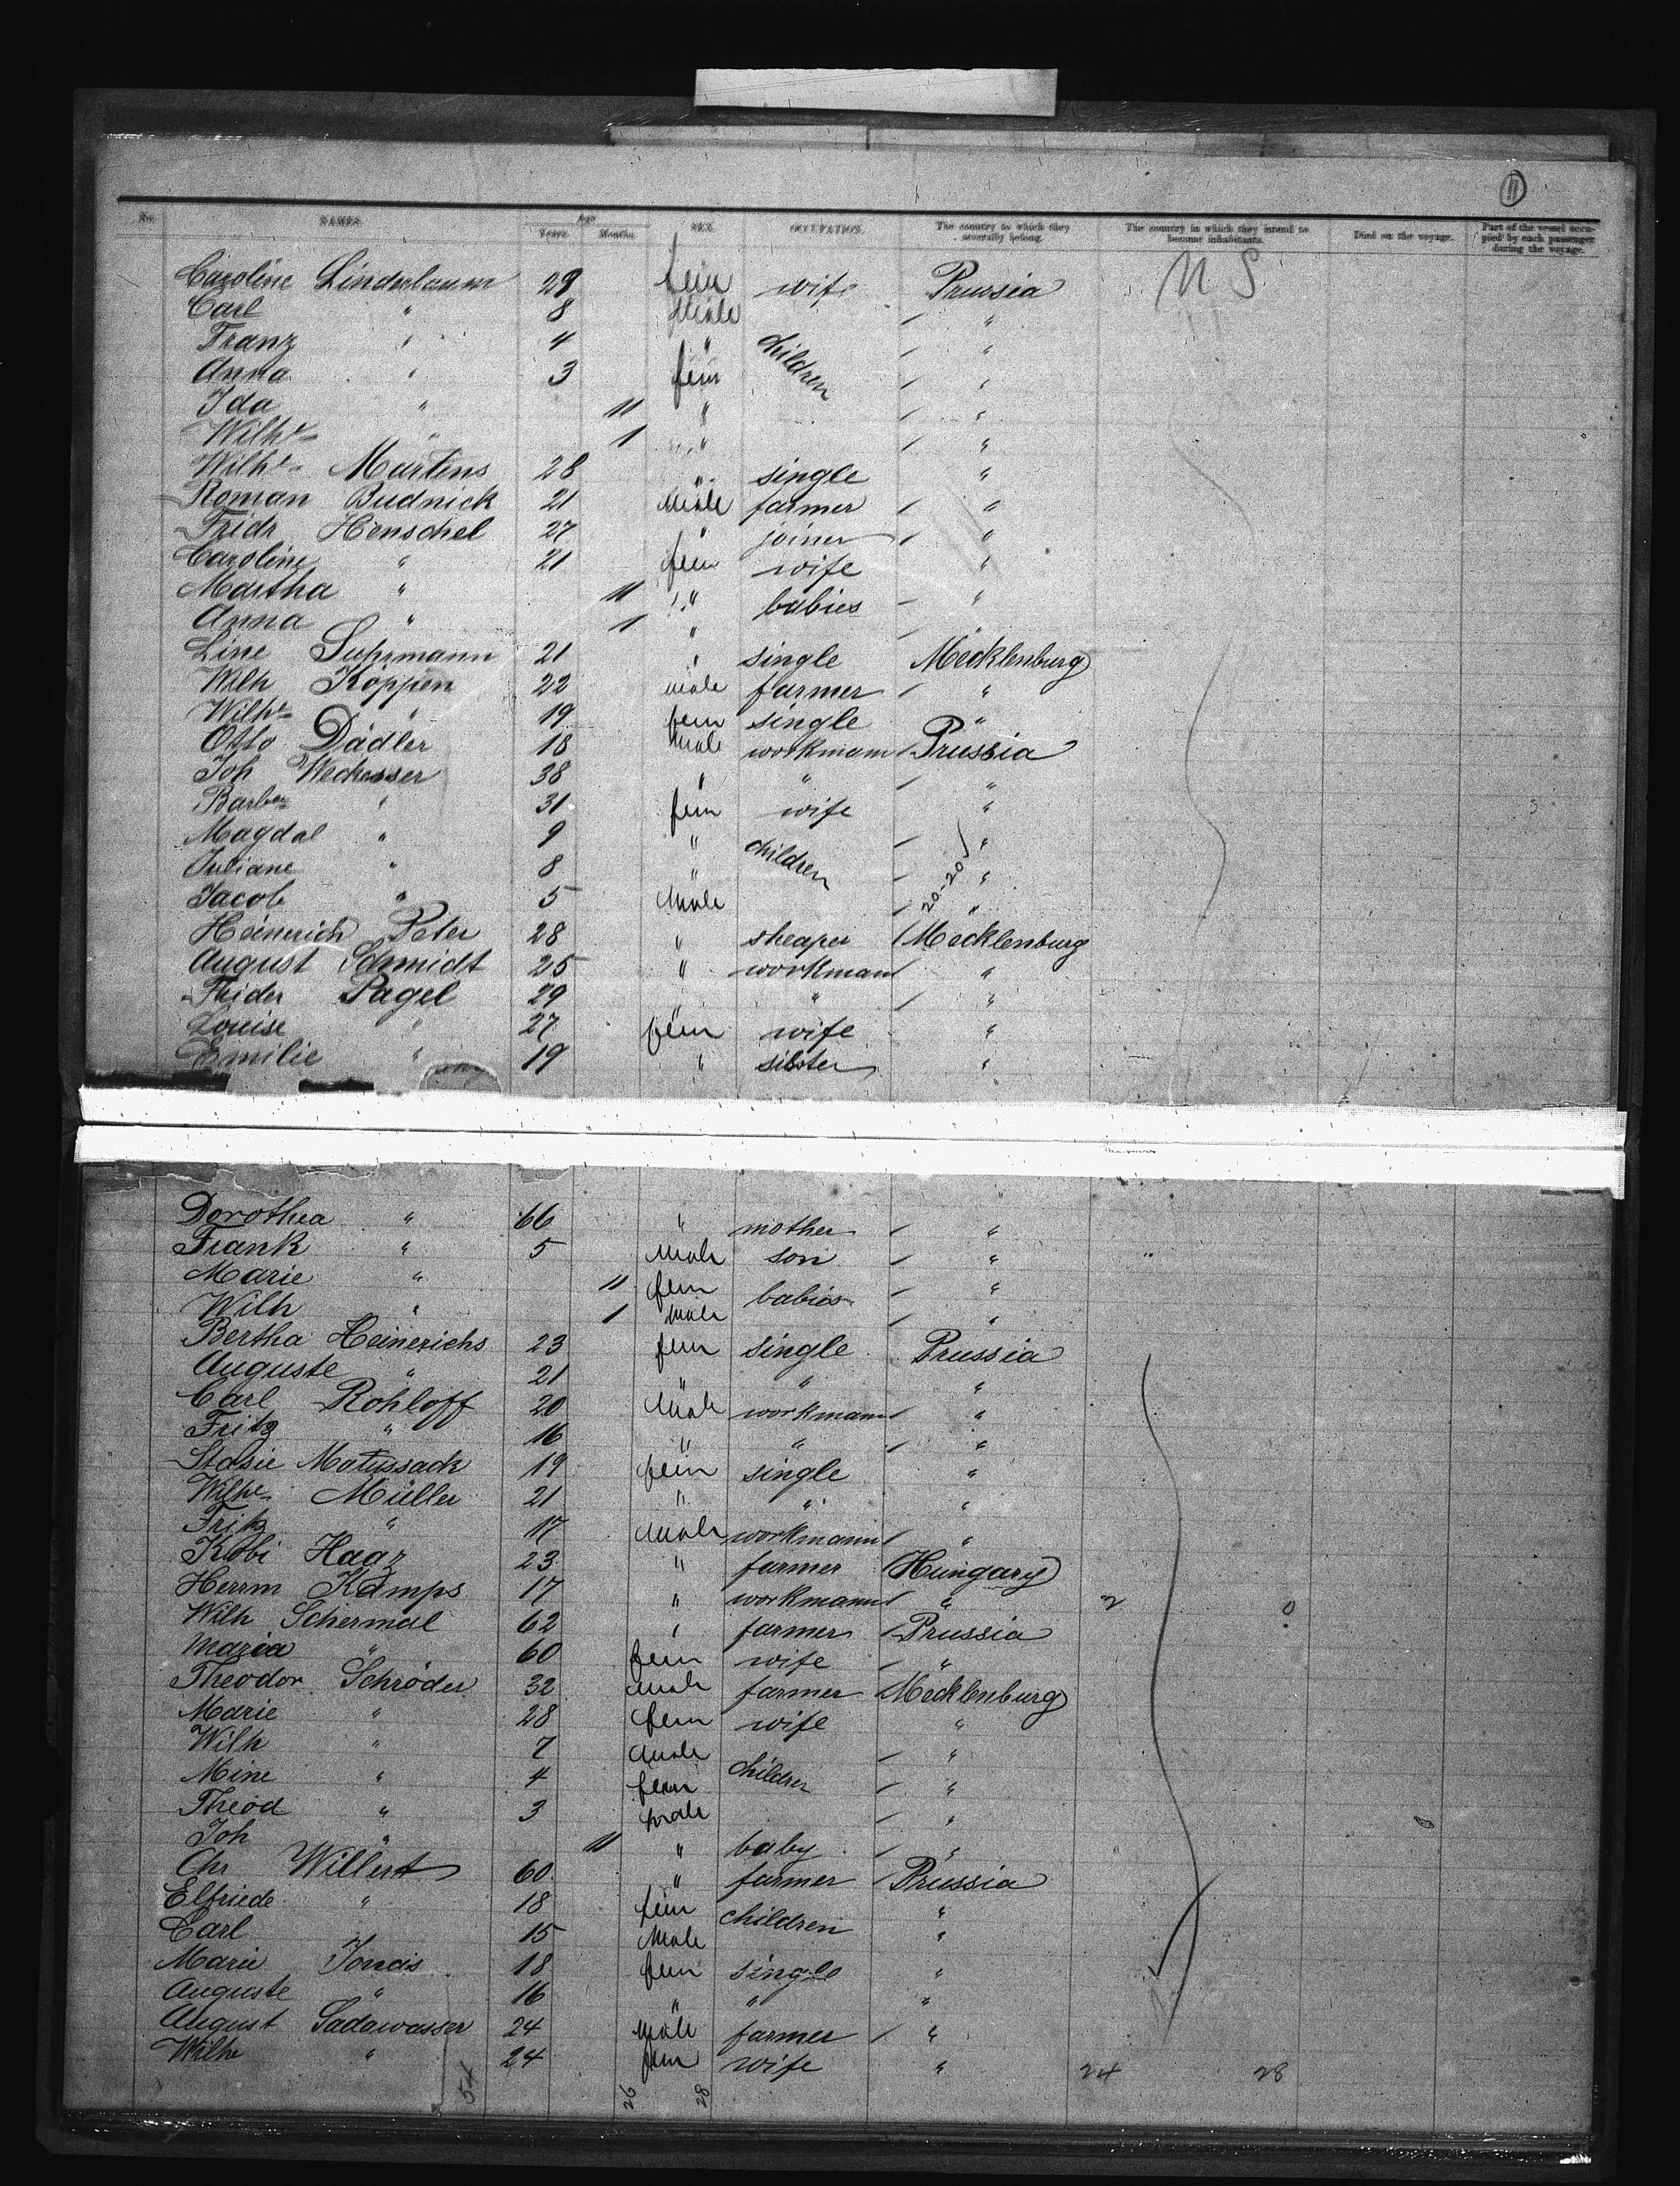 11
No. NAMES. Age Years. Months. SEX. OCCUPATION. The country to which they severally belong. The country in which they intend to become inhabitants. Died on the voyage. Part of the vessel occupied by each passenger during the voyage.
Caroline Linderbaum 29 fem wife Prussia U S
Carl " 8 Male "
Franz " 4 " children "
Anna " 3 fem "
Ida " 11 " "
Wilhe " 1 " "
Wilhe Martens 28 " single "
Roman Budnick 21 Male farmer "
Fridr Henschel 27 " joiner "
Caroline " 21 fem wife "
Martha " 11 " babies "
Anna " 1 " "
Line Suhrmann 21 " single Mecklenburg
Wilh Köppen 22 male farmer "
Wilhe " 19 fem single "
Otto Dädler 18 Male workmann Prussia
Joh Wechesser 38 " " "
Barb " 31 fem wife "
Magdal " 9 " children "
Juliane " 8 " 20-20 "
Jacob " 5 Male "
Heinerich Peter 28 " sheaper Mecklenburg
August Schmidt 25 " workmann "
Frider Pagel 29 " "
Louise " 27 fem wife "
Emilie " 19 " sibster "
Dorothea " 66 " mother "
Frank " 5 Male son "
Marie " 11 fem babies "
Wilh " 1 Male "
Bertha Heinerichs 23 fem single Prussia
Auguste " 21 " " "
Carl Rohloff 20 Male workmann "
Fritz " 16 " " "
Stasie Matussack 19 fem single "
Wilhe Müller 21 " " "
Fritz " 17 Male workmann "
Kobi Haaz 23 " farmer Hungary
Herrm Kamps 17 " workmann " 2 0
Wilh Schermal 62 " farmer Prussia
Maria " 60 fem wife "
Theodor Schröder 32 Male farmer Mecklenburg
Marie " 28 fem wife "
Wilh " 7 Male children "
Mine " 4 fem "
Theod " 3 Male "
Joh " 11 " baby "
Chr Willert 60 " farmer Prussia
Elfriede " 18 fem children "
Carl 15 Male "
Marie Jonas 18 fem single "
Auguste " 16 " " "
August Sadawasser 24 Male farmer "
Wilhe " 24 fem wife " 24 28
54 26 28